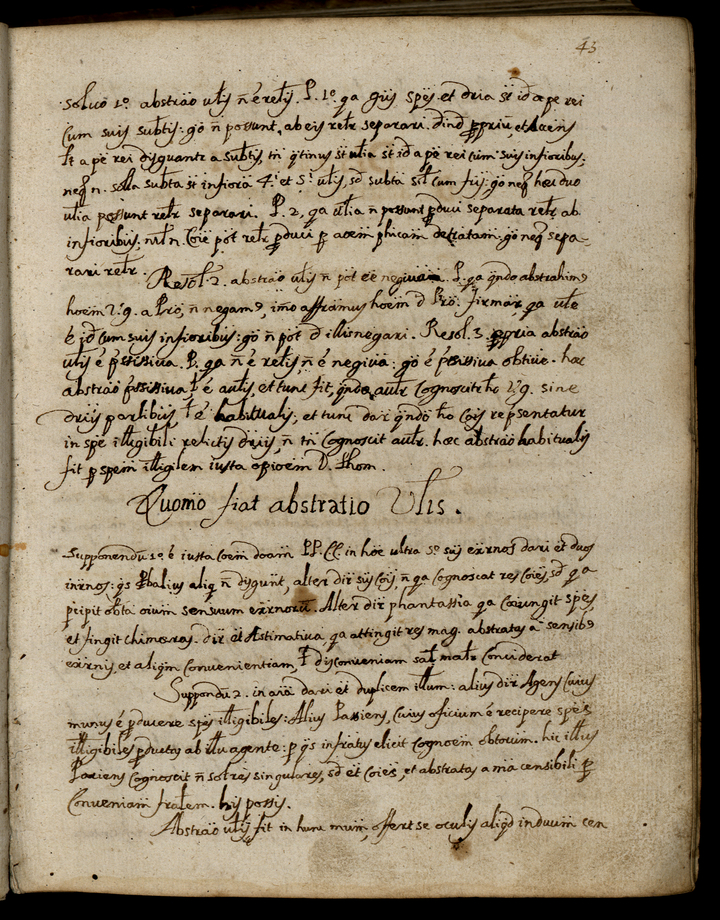 43
Soluo 1º abstrao ulis ñ é relis. P. 1º qa gñs spes et dria st id a pe rei
Cum suis subtis: go ñ possunt ab eis relr separari. dind ppriu, et Accns
lt a pe rei disguantr a subtis, tñ qtinus st ulia st id a pe rei cum suis infioribus:
neq n. solla subta st infiora 4.i et 5.i ulis, sd subta sil cum friis; go neq hæc duo
ulia possunt relr separari. P. 2, qa ulia ñ possunt pduci separata relr ab
infioribus, nil n. Coie pot relr pduci p acem phicam detratam: go neq sepa-
rari relr. Resol. 2. abstrao ulis ñ pot ee negiua. P. qa qndo abstrahim9
hoem v. g. a Pro, ñ negam9, imo affirmus hoem d Pro: firmar, qa ule
é id cum suis infioribus: go ñ pot d illis negari. Resol. 3. ppria abstrao
ulis é pssissiua. P. qa ñ é relis, ñ é negiua: go é pssissiua obtiue. hæc
abstrao pssissiua l é aulis, et tunc fit, qndo aulr Cognoscitr ho v. g. sine
driis parlibus l é habitualis; et tunc dar qndo ho Cois repsentatur
in spe illigibili relictis driis, ñ tñ Cognoscit aulr. hæc abstrao habitualis
fit p spem illigilem iusta opioem D. Thom.
Quomo fiat abstratio Ulis.
Supponendu 1º é iusta Coem doam PP. CC. in hoe ultra 5º sus exrnos dari et duos
inrnos: qs balius aliq ñ disgunt, alter dir sus Cois ñ qa Cognoscat res Coies, sd qa
pcipit obta oium sensuum exrnoru. Alter dir phantassia qa Coiungit spes,
et fingit chimæras. dir et Æstimatiua, qa attingit res mag. abstratas a sensib9
exrnis, et aliqm Conuenientiam, l disconueniam sal mal Considerat
Suppondu 2. in aia dari et duplicem illum: alius dir Agens Cuius
munus é pducere spes illigibiles: Alius Passiens, Cuius oficium é recipere spes
illigibiles pductas ab illu agente: p qs infratus elicit Cognoem obtorum. hic illus
Paciens Cognoscit ñ sol res singulares, sd et Coies, et abstratas a mã censibili p
Conueniam fralem. his possis.
Abstrao ulis fit in hunc mum, offert se oculis aliqd induum cen